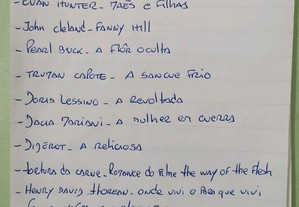 - EVAN HUNTER - MÃES e FILHAS
- John cleland - FANNY HILL
- Pearl Buck - A FLÔR oculta
- TRUMAN CAPOTE - A SANGUE FRIO
- DORIS LESSING - A REVOLTADA
- DACIA MARIANI - A mulher em GUERRA
- DIDEROT - A religiosa
da CARNE - ROMANCE do filme the way of the Flesh
- HENRY DAVID thoreau - ONDE VIVI e PARA que VIVI